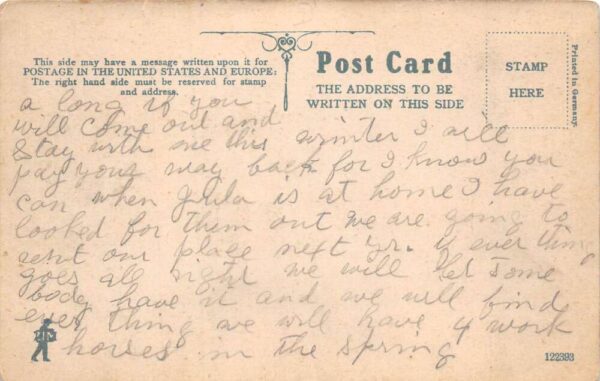 This side may have a message written upon it for
POSTAGE IN THE UNITED STATES AND EUROPE:
The right hand side must be reserved for stamp
and address.
Post Card
THE ADDRESS TO BE
WRITTEN ON THIS SIDE
STAMP
HERE
Printed in Germany
a long if you
will come out and
Stay with me this winter I will
pay your way back for I know you
can when Jula is at home I have
looked for them out we are going to
rent our place next yr. if ever thing
goes all right we will let some
body have it and we will find
every thing we will have 4 work
horses in the spring
122393